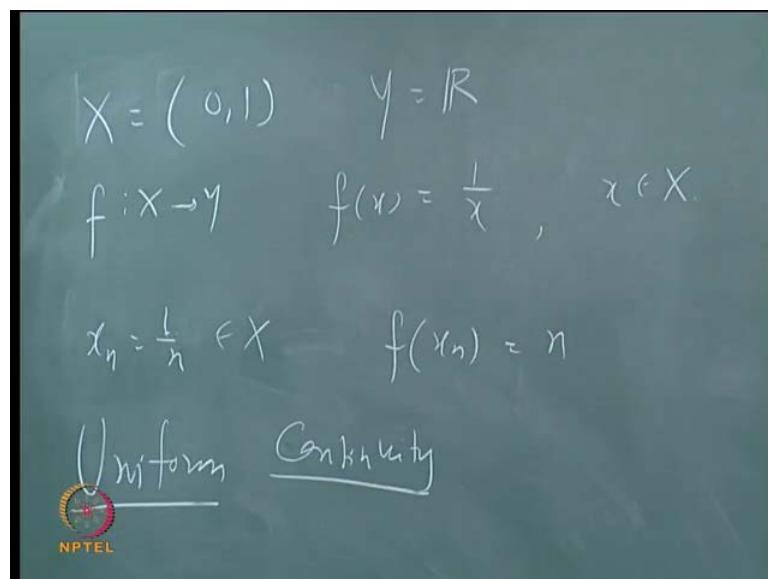 X = (0,1) Y = ℝ
f : X → Y f(x) = 1/x , x ∈ X.
xₙ = 1/n ∈ X f(xₙ) = n
Uniform Continuity
NPTEL